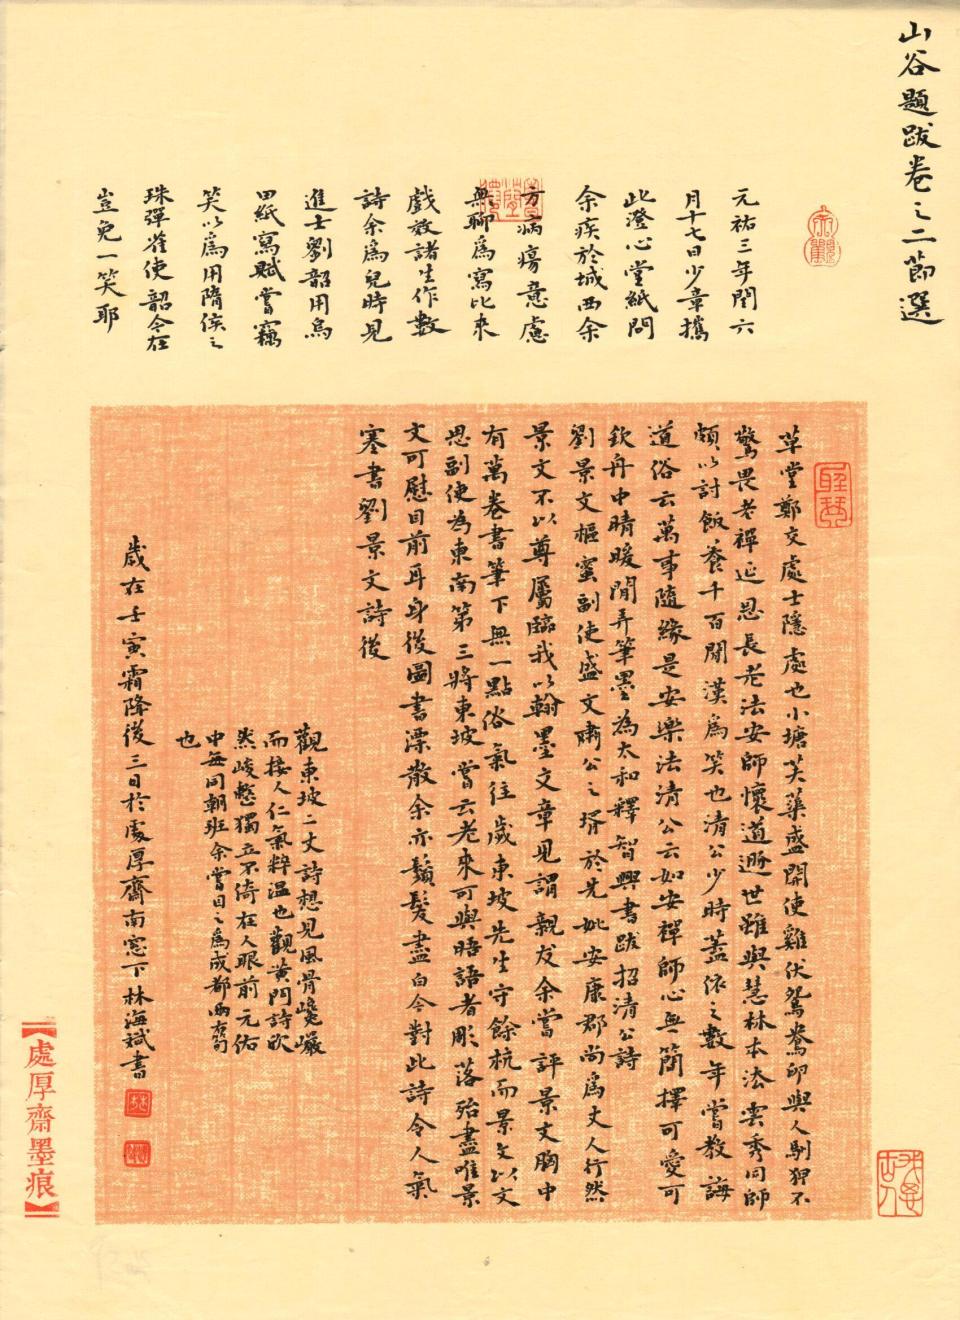 山谷題跋卷之二節選
元祐三年閏六
月十七日少章攜
此澄心堂紙問
余疾於城西余
方病瘍意慮
無聊為寫比來
戲效諸生作數
詩余為兒時見
進士劉韶用烏
田紙寫賦嘗竊
笑以為用隋侯之
珠彈雀使韶今在
豈免一笑耶
草堂鄭交處士隱處也小塘芙蕖盛開使雞伏鴛鴦卵與人馴狎不
驚畏老禪延恩長老法安師懷道遯世雖與慧林本法雲秀同師
頗以討飯養千百閒漢為笑也清公少時蓋依之數年嘗教誨
道俗云萬事隨緣是安樂法清公云如安禪師心無簡擇可愛可
欽舟中晴暖閒弄筆墨為太和釋智興書跋招清公詩
劉景文樞蜜副使盛文肅公之壻於先妣安康郡尚為丈人行然
景文不以尊屬臨我以翰墨文章見謂親友余嘗評景文胸中
有萬卷書筆下無一點俗氣往歲東坡先生守餘杭而景文以文
思副使為東南第三將東坡嘗云老來可與晤語者彫落殆盡唯景
文可慰目前耳身後圖書漂散余亦鬚髮盡白今對此詩令人氣
塞書劉景文詩後
觀東坡二丈詩想見風骨巉巖
而接人仁氣粹溫也觀黃門詩頎
然峻整獨立不倚在人眼前元佑
中每同朝班余嘗目之為成都兩石筍
也
歲在壬寅霜降後三日於處厚齋南窗下林海斌書
處厚齋墨痕